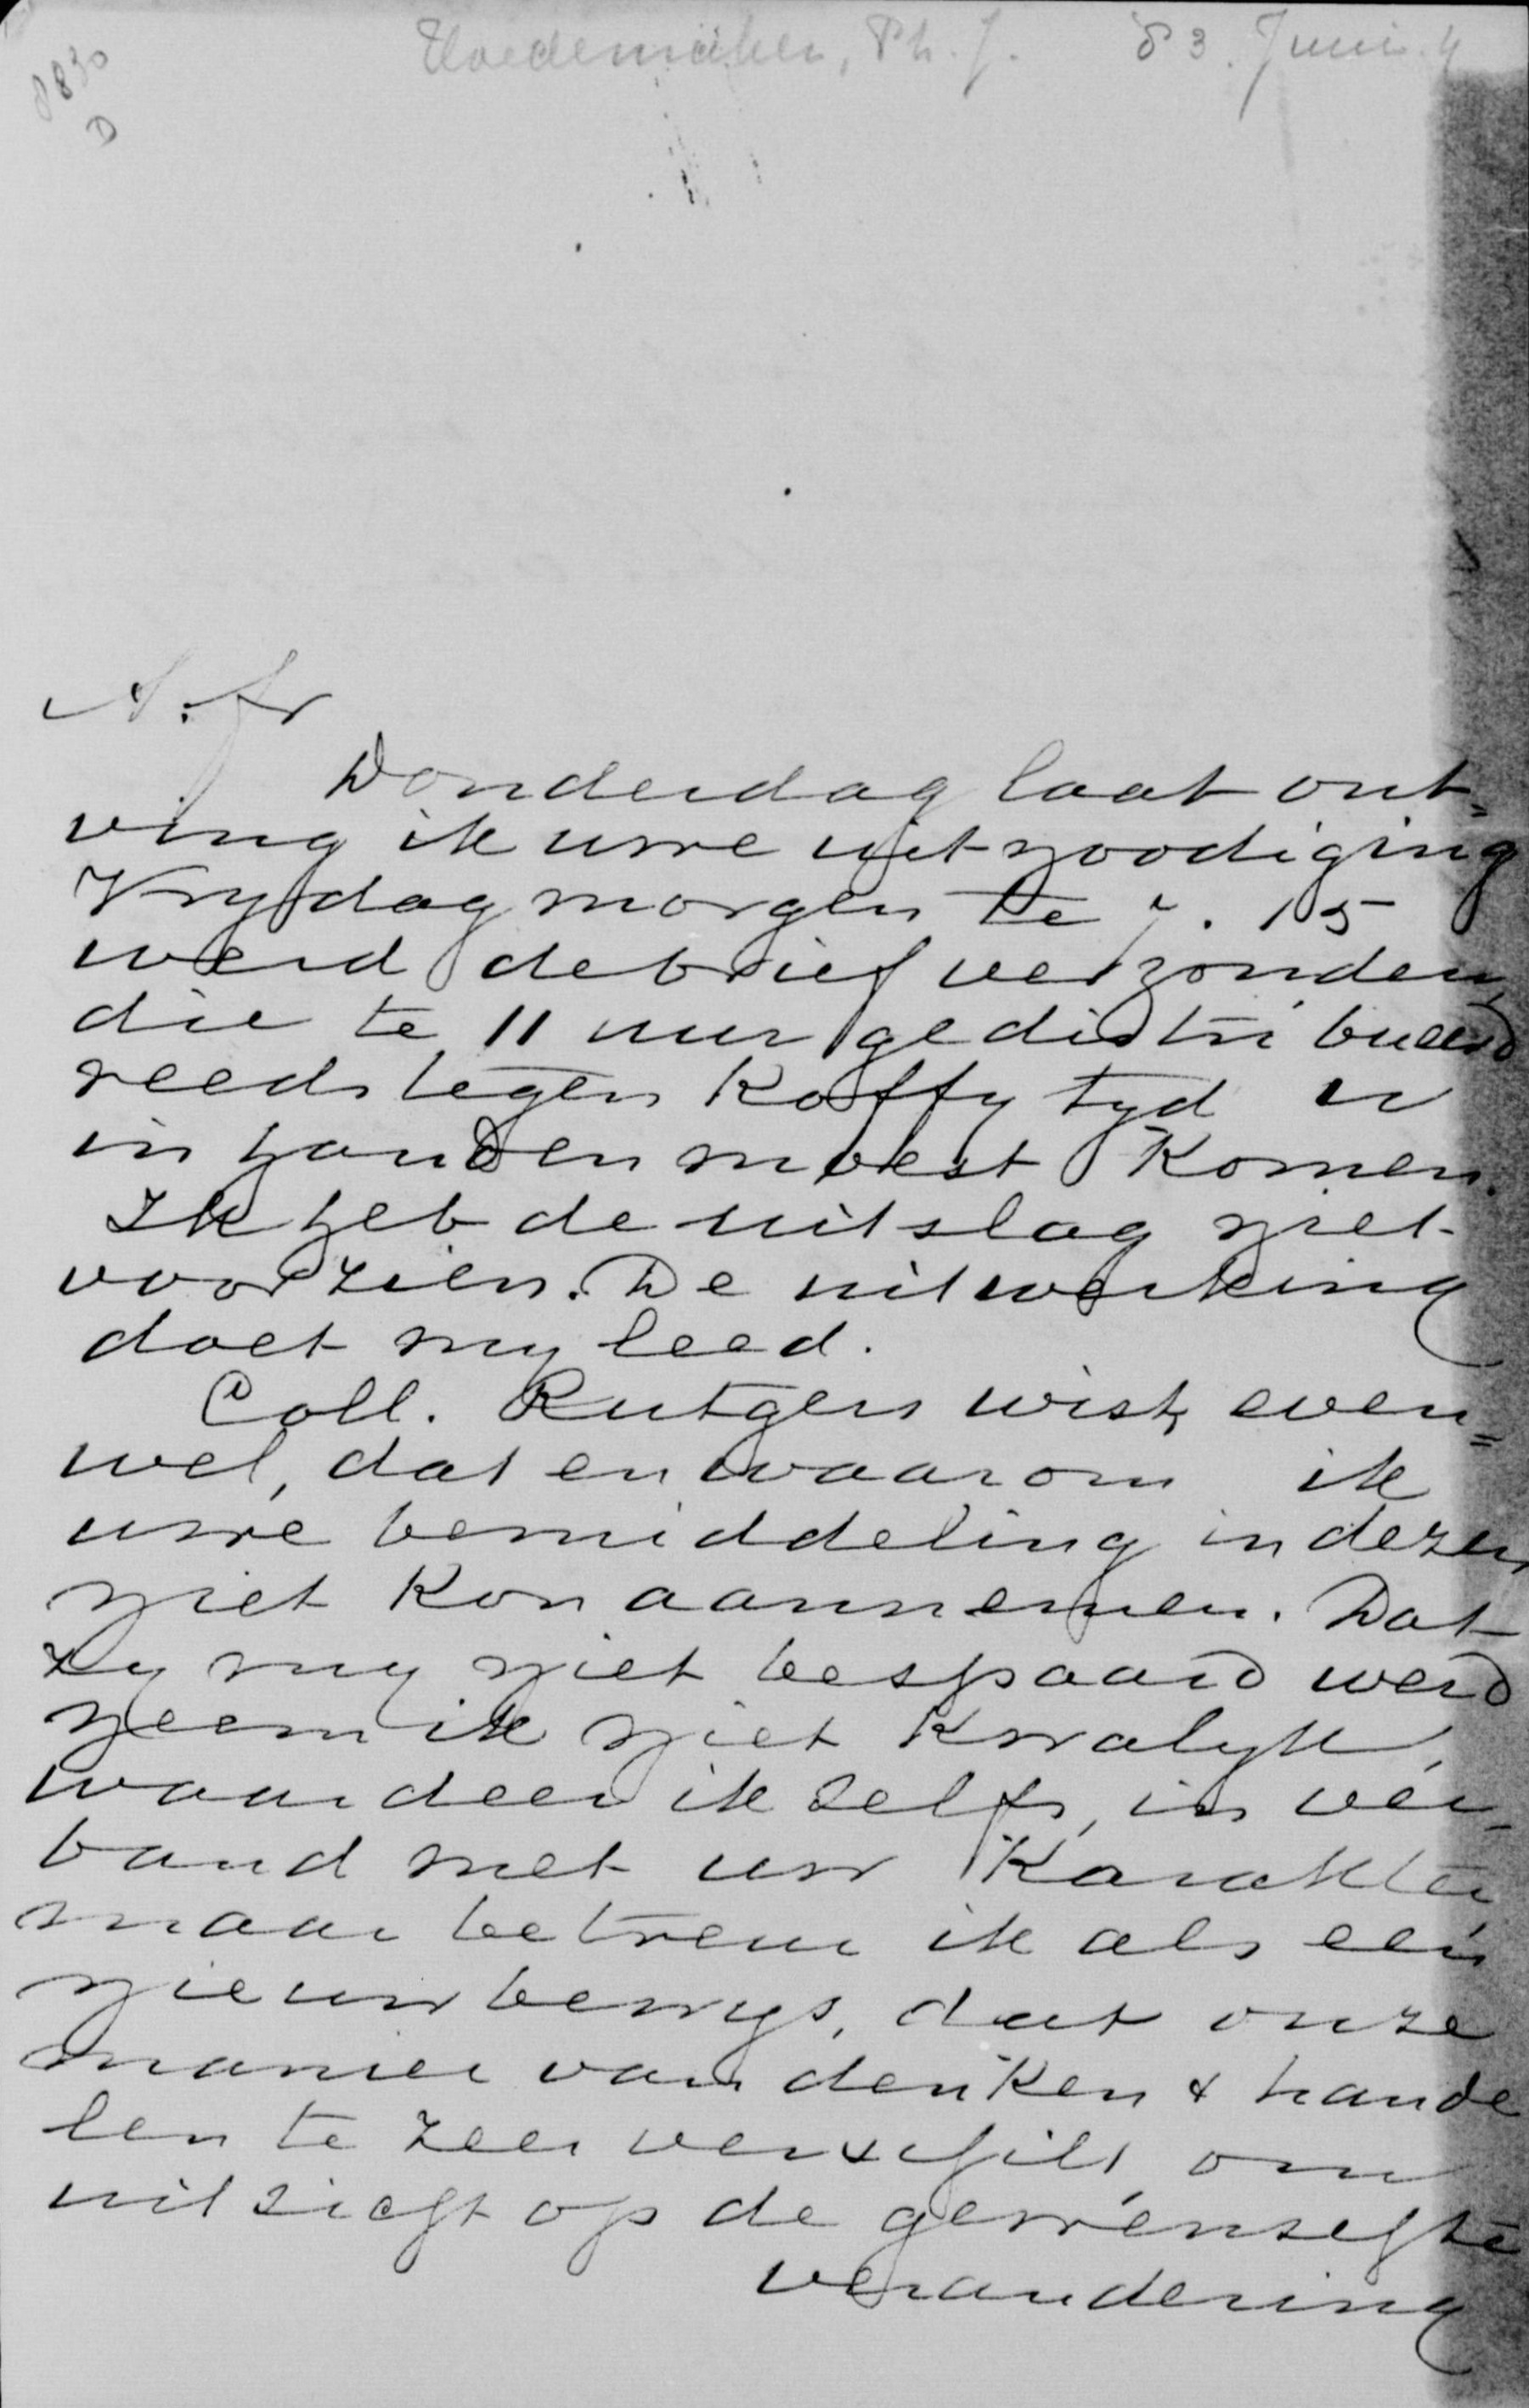 Hoedemaker, Ph. J. 83. Juni. 4
8830
D
A. Fr
Donderdag laat ont=
ving ik uwe uitnoodiging
Vrydag morgen te 7. 15
werd de brief verzonden,
die te 11 uur gedistribueerd
reeds tegen Koffy tyd u
in handen moest Komen.
Ik heb de uitslag niet
voorzien. De uitwerking
doet my leed.
Coll. Rutgers wist, even=
wel, dat en waarom ik
uwe bemiddeling in dezen
niet Kon aannemen. Dat
zy my niet bespaard werd
neem ik niet Kwalyk,
waardeer ik zelfs, in ver=
band met uw Karakter,
maar betreur ik als een
nieuw bewys, dat onze
manier van denken & hande
len te zeer verschilt, om
uitzicht op de gewenschte
verandering